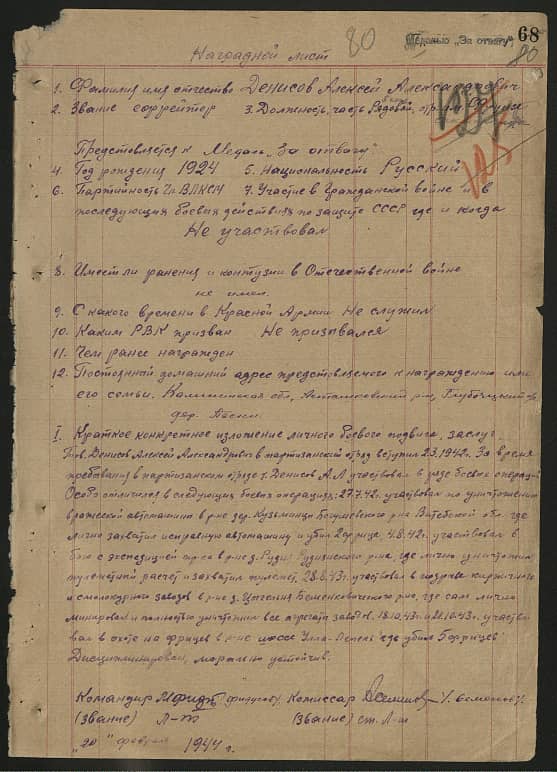 80
Медалью „За отвагу"
68
80
Наградной лист
1. Фамилия имя отчество Денисов Алексей Александрович
2. Звание ефрейтор 3. Должность, часть Рядовой
Представляется к Медаль „За отвагу"
4. Год рождения 1924 5. Национальность Русский
6. Партийность Чл. ВЛКСМ 7. Участие в Гражданской войне и в
последующих боевых действиях по защите СССР где и когда
Не участвовал
8. Имест ли ранения и контузии в Отечественной войне
не имел.
9. С какого времени в Красной Армии Не служил
10. Каким РВК призван Не призывался
11. Чем ранее награжден
12. Постоянный домашний адрес представляемого к награждению или
его семьи. Калининская обл,
дер.
I. Краткое конкретное изложение личного боевого подвига, заслуг
Тов. Денисов Алексей Александрович в партизанский отряд вступил 2.3.1942г. За время
пребывания в партизанском отряде т. Денисов А.А участвовал в ряде боевых операций
Особо отличился в следующих боевых операциях: 27.7.42. участвовал по уничтожению
вражеской автомашины в р-не дер. Кузьминцы Витебской обл. где
лично захватил исправную автомашину и убил 2 фрица. 4.8.42г. участвовал в
бою с экспедицией в р-не д. р-на, где лично уничтожил
пулеметный расчет и захватил пулемет. 28.8.43г. участвовал в кирпичного
и смолокурного заводов в р-не д. Бешенковичского р-на, где сам лично
минировал и полностью уничтожил все агрегаты завода. 18.10.43г. и 21.10.43г. участво
вал в охоте на фрицев в р-не шоссе Улла-Лепель где убил фрицев
Дисциплинирован, морально устойчив.
Командир Комиссар
(звание) Л-т (звание) ст. Л-т
„20" февраля 1944 г.